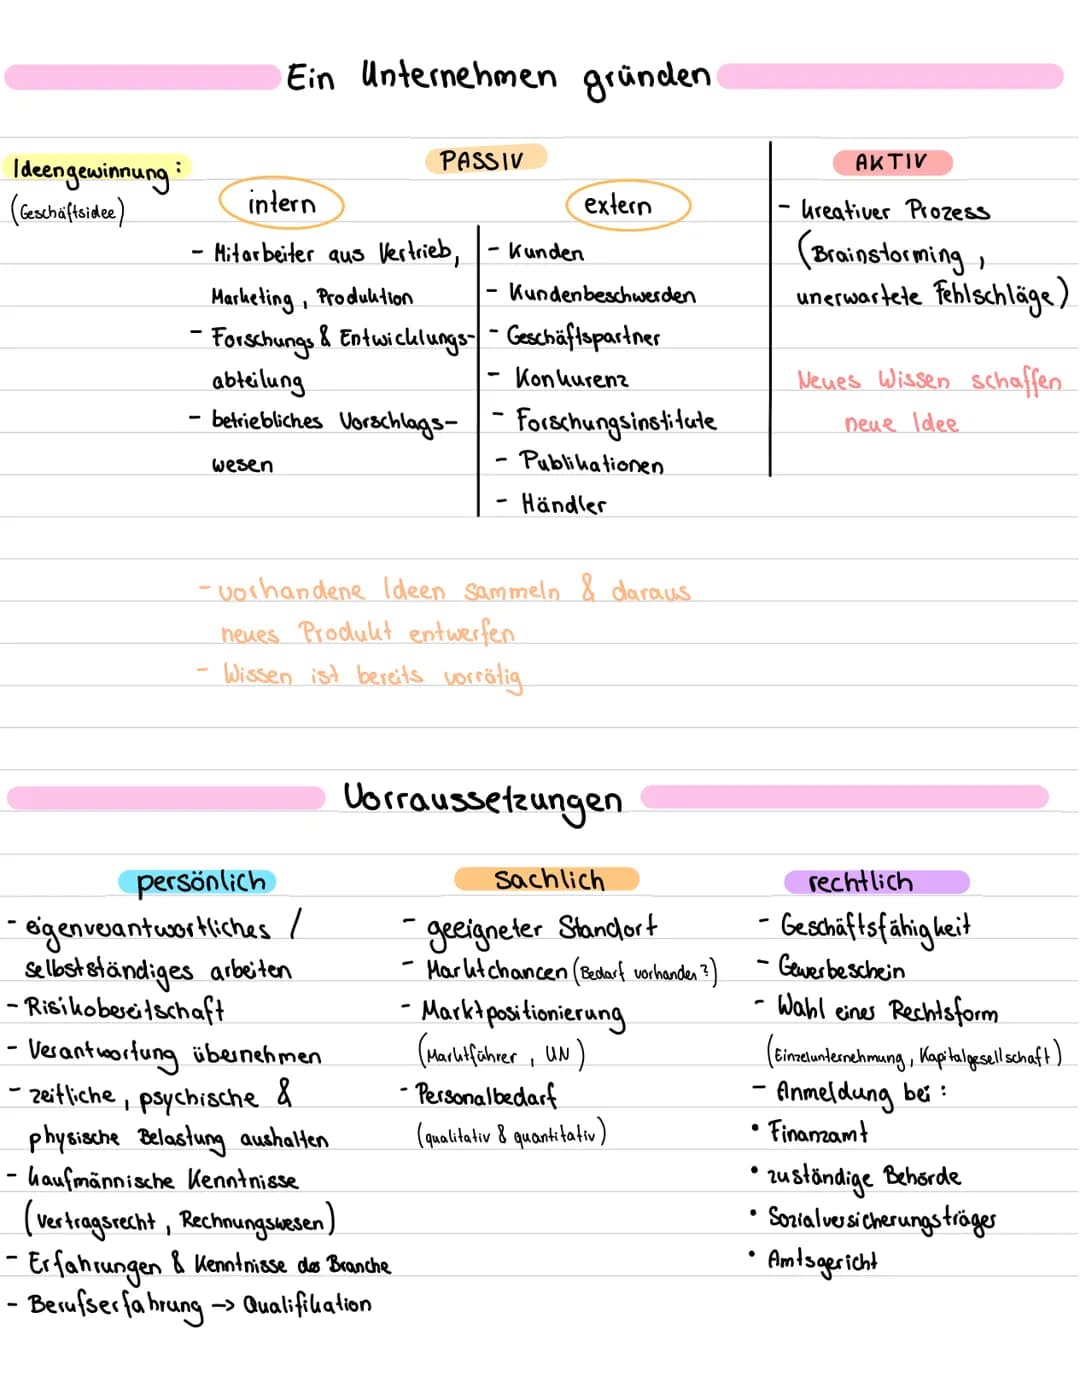 Ein Unternehmen gründen
Ideengewinnung:
(Geschäftsidee)
PASSIV
intern
- Mitarbeiter aus Vertrieb,
Marketing, Produktion
- Forschungs & Entwicklungs-
abteilung
- betriebliches Vorschlags-
wesen
extern
- Kunden
- Kundenbeschwerden
- Geschäftspartner
- Konkurenz
- Forschungsinstitute
- Publikationen
- Händler
- vorhandene Ideen sammeln & daraus
neues Produkt entwerfen
- Wissen ist bereits vorrätig
AKTIV
- kreativer Prozess
(Brainstorming,
unerwartete Fehlschläge)
Neues Wissen schaffen
neue Idee
Vorraussetzungen
persönlich
- eigenverantwortliches /
selbstständiges arbeiten
- Risikobereitschaft
- Verantwortung übernehmen
- zeitliche, psychische &
physische Belastung aushalten
- kaufmännische Kenntnisse
(Vertragsrecht, Rechnungswesen)
- Erfahrungen & Kenntnisse der Branche
- Berufserfahrung -> Qualifikation
sachlich
- geeigneter Standort
- Marktchancen (Bedarf vorhanden?)
- Marktpositionierung
(Marktführer, UN)
- Personalbedarf
(qualitativ & quantitativ)
rechtlich
- Geschäftsfähigkeit
- Gewerbeschein
- Wahl einer Rechtsform
(Einzelunternehmung, Kapitalgesellschaft)
- Anmeldung bei:
• Finanzamt
• zuständige Behörde
• Sozialversicherungsträger
• Amtsgericht